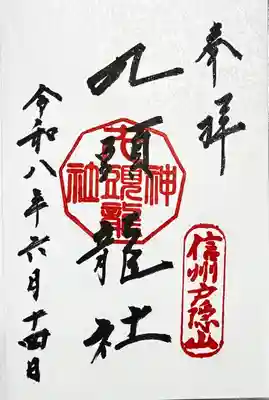 奉拝
信州戸隠山
九頭龍社
九頭龍神社
令和八年六月十四日